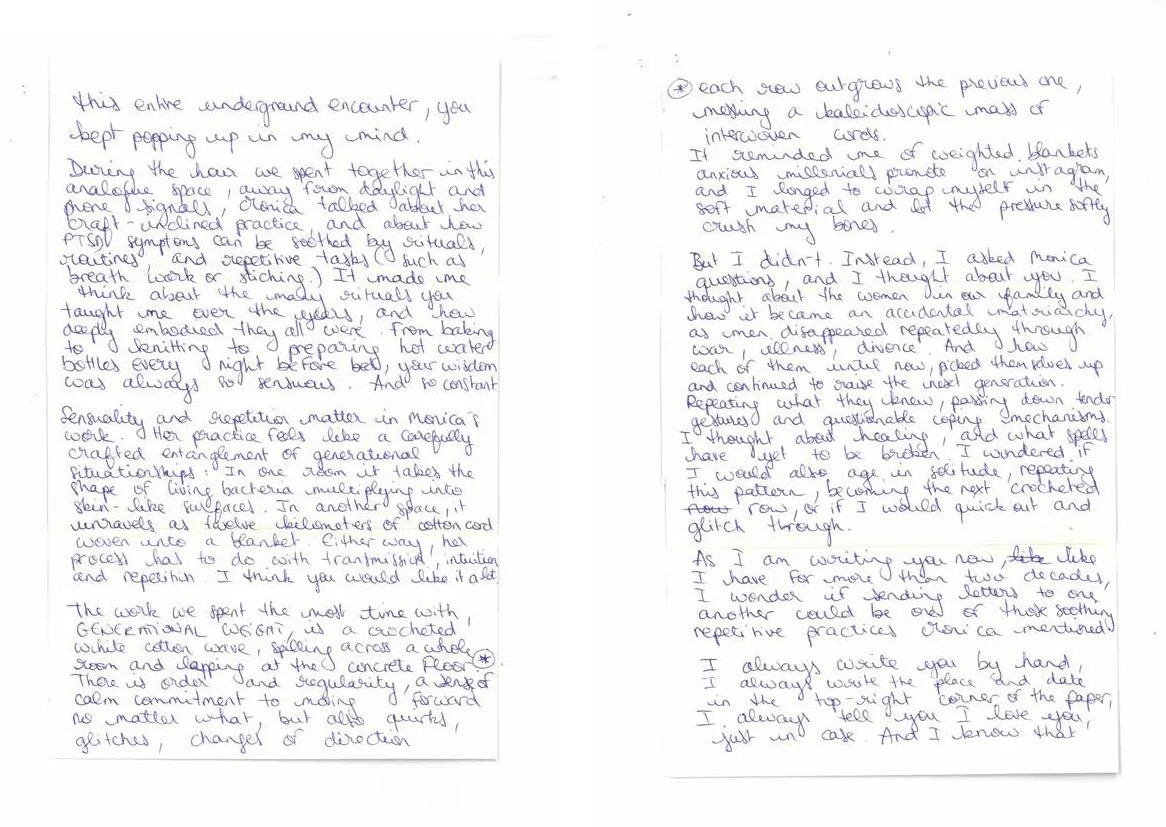 this entire underground encounter, you
kept popping up in my mind.
During the hour we spent together in this
analogue space, away from daylight and
phone signals, Monica talked about her
craft-inclined practice, and about how
PTSD symptoms can be soothed by rituals,
routines and repetitive tasks (such as
breath work or stiching.) It made me
think about the many rituals you
taught me over the years, and how
deeply embodied they all were. From baking
to knitting to preparing hot water
bottles every night before bed, your wisdom
was always so sensuous. And so constant
Sensuality and repetition matter in Monica's
work. Her practice fels like a carefully
crafted entanglement of generational
situationships: In one room it takes the
shape of living bacteria multiplying into
skin-like surfaces. In another space, it
unravels as twelve kilometers of cotton cord
woven into a blanket. Either way, her
process has to do with tranmission, intuition
and repetition. I think you would like it a lot.
The work we spent the most time with,
GENERATIONAL WEIGHT, is a crocheted
white cotton wave, spilling across a whole
room and lapping at the concrete floor *
There is order and regularity, a sense of
calm commitment to moving forward
no matter what, but also quirks,
glitches, changes of direction
* each row outgrows the previous one,
meshing a kaleidoscopic mass of
interwoven cords.
It reminded me of weighted blankets
anxious millenials promote on instagram,
and I longed to wrap myself in the
soft material and let the pressure softly
crush my bones.
But I didn't. Instead, I asked Monica
questions, and I thought about you. I
thought about the women in our family and
how it became an accidental matriarchy,
as men disappeared repeatedly through
war, illness, divorce. And how
each of them until now, picked themselves up
and continued to raise the next generation.
Repeating what they knew, passing down tender
gestures and questionable coping mechanisms.
I thought about healing, and what spells
have yet to be broken. I wondered if
I would also age in solitude, repeating
this pattern, becoming the next crocheted
row, or if I would quick out and
glitch through.
As I am writing you now, like
I have for more than two decades,
I wonder if sending letters to one
another could be one of those soothing
repetitive practices Monica mentioned
I always write you by hand,
I always write the place and date
in the top-right corner of the paper,
I always tell you I love you,
just in case. And I know that